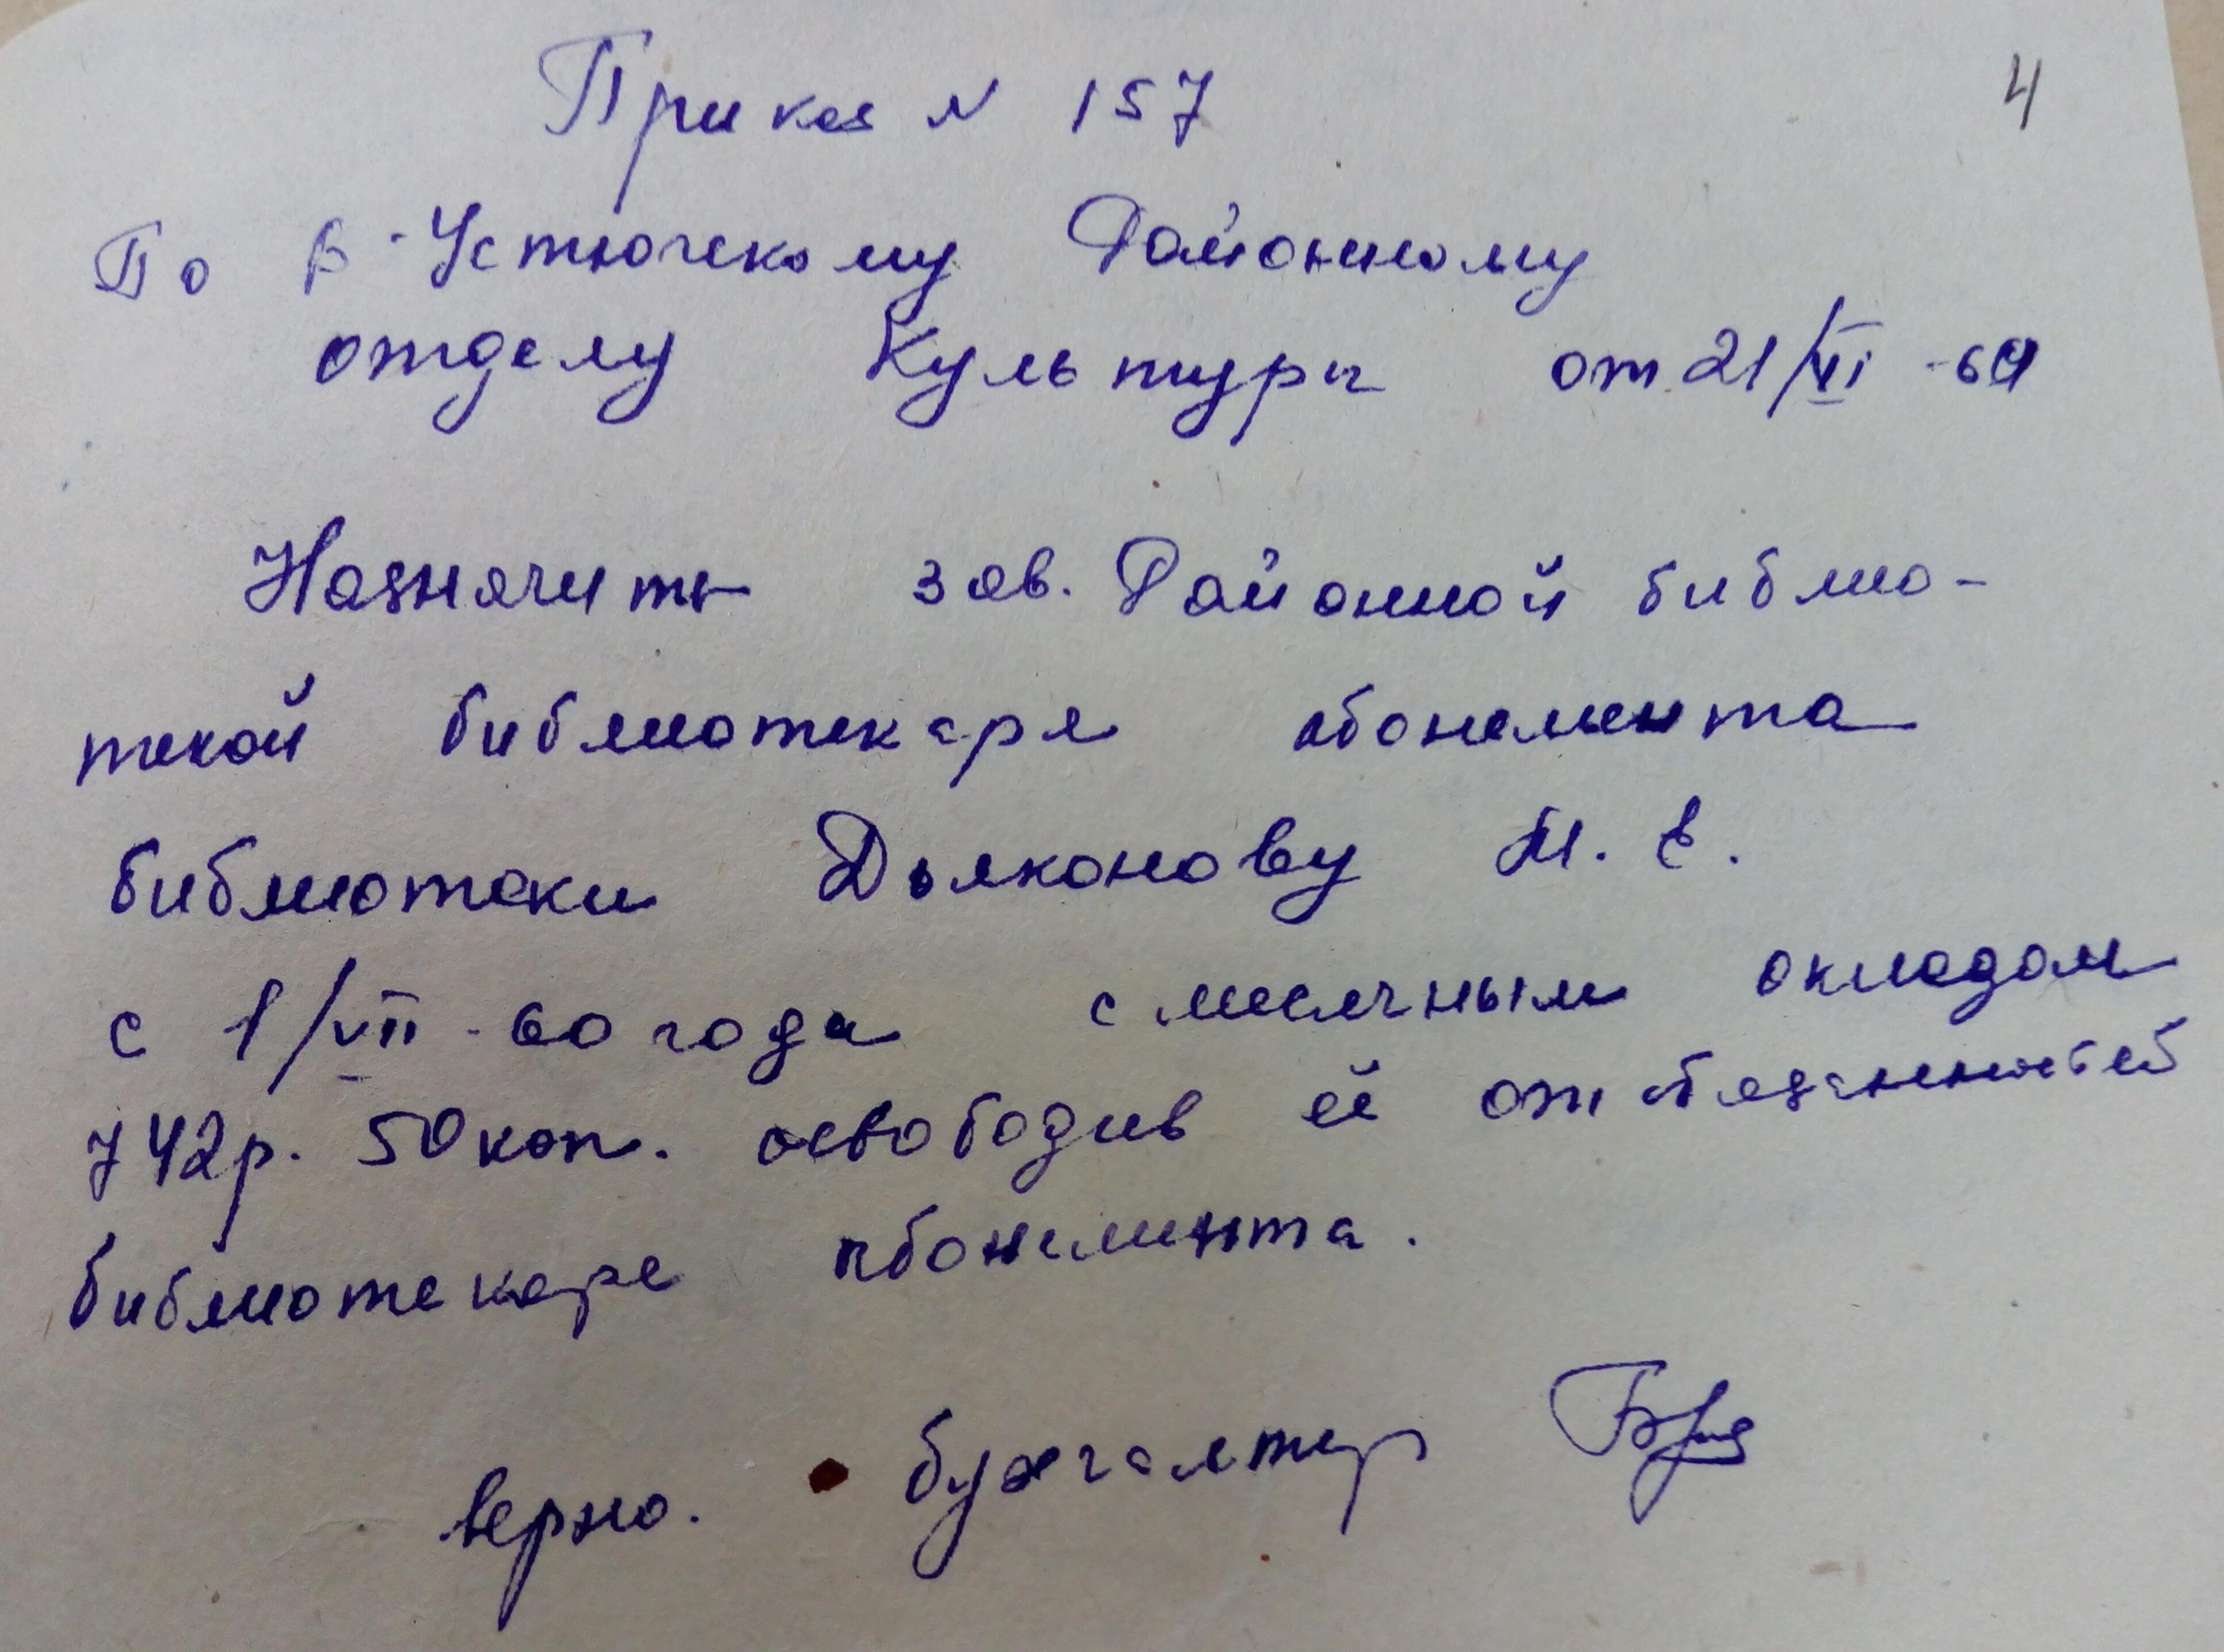 4
Приказ N 157
По В-Устюгскому Районному
отделу Культуры от 21/VI -60
Назначить зав. Районной библио-
текой библиотекаря абонемента
библиотеки Дьяконову М. Е.
с 1/VII-60 года с месячным окладом
742р. 50коп. освободив её от обязанностей
библиотекаря абонемента.
верно. бухгалтер